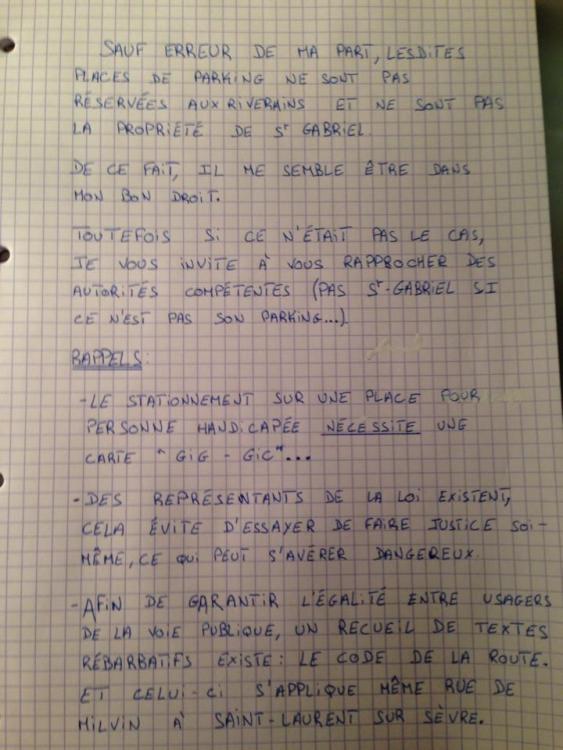 SAUF ERREUR DE MA PART, LESDITES
PLACES DE PARKING NE SONT PAS
RÉSERVÉES AUX RIVERAINS ET NE SONT PAS
LA PROPRIÉTÉ DE St GABRIEL.
DE CE FAIT, IL ME SEMBLE ÊTRE DANS
MON BON DROIT.
TOUTEFOIS SI CE N'ÉTAIT PAS LE CAS,
JE VOUS INVITE À VOUS RAPPROCHER DES
AUTORITÉS COMPÉTENTES (PAS St-GABRIEL SI
CE N'EST PAS SON PARKING...)
RAPPELS:
- LE STATIONNEMENT SUR UNE PLACE POUR
PERSONNE HANDICAPÉE NÉCESSITE UNE
CARTE "GIG - GIC"...
- DES REPRÉSENTANTS DE LA LOI EXISTENT,
CELA ÉVITE D'ESSAYER DE FAIRE JUSTICE SOI-
MÊME, CE QUI PEUT S'AVÉRER DANGEREUX.
- AFIN DE GARANTIR L'ÉGALITÉ ENTRE USAGERS
DE LA VOIE PUBLIQUE, UN RECUEIL DE TEXTES
RÉBARBATIFS EXISTE: LE CODE DE LA ROUTE.
ET CELUI-CI S'APPLIQUE MÊME RUE DE
MILVIN À SAINT-LAURENT SUR SÈVRE.